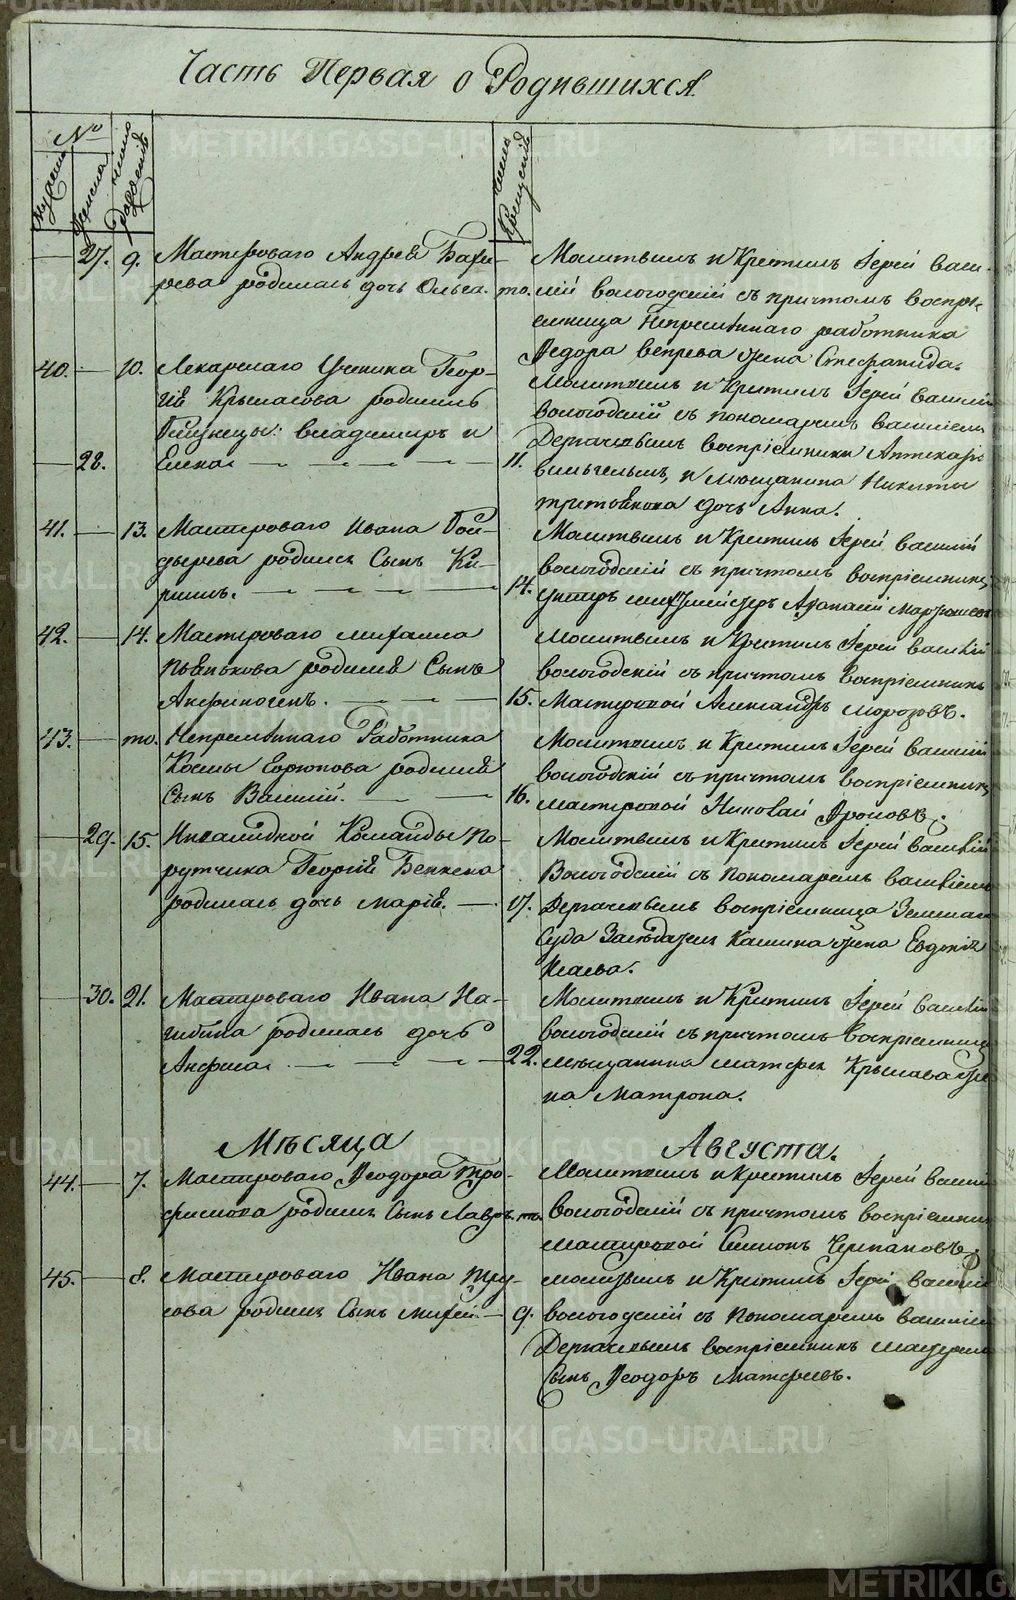 Часть Первая о Родившихся
№
Мужеска
Женска
число рождения
число крещения
27. 9. Мастероваго Андрея
рева родилась дочь Ольга. то.
Молитвилъ и Крестилъ Іерей Васи-
лій Вологодскій съ причтомъ воспрі-
емница Непремѣннаго работника
Ѳедора Вепрева жена Стефанида.
40. 10. Лекарскаго Ученика Геор-
гія Крыласова родились
близнецы: Владимиръ и
28. Елена 11.
Молитвилъ и Крестилъ Іерей Василій
Вологодскій съ пономаремъ Василіемъ
Дергачевымъ воспріемники Аптекарь
Вильгельмъ, и мещанина Никиты
дочь Анна.
41. 13. Мастероваго Ивана
родился Сынъ Ки-
рилъ. 14.
Молитвилъ и Крестилъ Іерей Василій
Вологодскій съ причтомъ воспріемникъ
Афанасій
42. 14. Мастероваго Михаила
Пьянкова родился Сынъ
Анфиногенъ. 15.
Молитвилъ и Крестилъ Іерей Василій
Вологодскій съ причтомъ воспріемникъ
Мастеровой Александръ Морозовъ.
43. то. Непремѣннаго Работника
Козмы родился
Сынъ Василій. 16.
Молитвилъ и Крестилъ Іерей Василій
Вологодскій съ причтомъ воспріемникъ
мастеровой Николай Фроловъ.
29. 15. Инвалидной Команды По-
ручика Георгія
родилась дочь Марія. 17.
Молитвилъ и Крестилъ Іерей Василій
Вологодскій съ пономаремъ Василіемъ
Дергачевымъ воспріемница Земскаго
Суда Засѣдателя Калина жена Евдокія
Исаева.
30. 21. Мастероваго Ивана На-
гибина родилась дочь
Анфиса. 22.
Молитвилъ и Крестилъ Іерей Василій
Вологодскій съ причтомъ воспріемница
мещанина Матфея жe
на Матрона.
Мѣсяца Августа.
44. 7. Мастероваго Ѳеодора Тро-
фимова родился Сынъ Лавръ. то.
Молитвилъ и Крестилъ Іерей Василій
Вологодскій съ причтомъ воспріемникъ
мастеровой Симионъ Черпановъ.
45. 8. Мастероваго Ивана Тру-
сова родился Сынъ 9.
молитвилъ и Крестилъ Іерей Василій
вологодскій съ пономаремъ Василіемъ
Дергачевымъ воспріемникъ
Сынъ Ѳеодоръ Матфеевъ.
METRIKI.GASO-URAL.RU